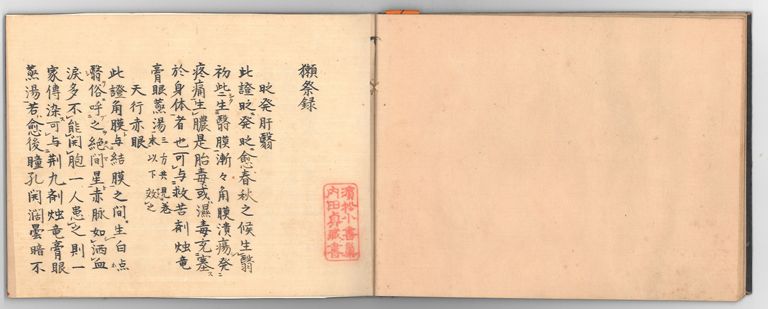 獺祭録
眵発肝翳
此證眵発眵愈春秋之候生翳
初此生翳膜漸々角膜潰瘍発
疼痛生膿是胎毒或濕毒充塞
於身体者也可与救苦剤燭竜
膏眼蒸湯三方共現巻末以下效之
天行赤眼
此證角膜与結膜之間生白点
翳俗呼之絶间星赤脉如洒血
涙多不能闲胞一人患之則一
家傳染可与荆九剤燭竜膏眼
蒸湯若愈後瞳孔闲濶曇暗不
濱松小書巣
内田真蔵書